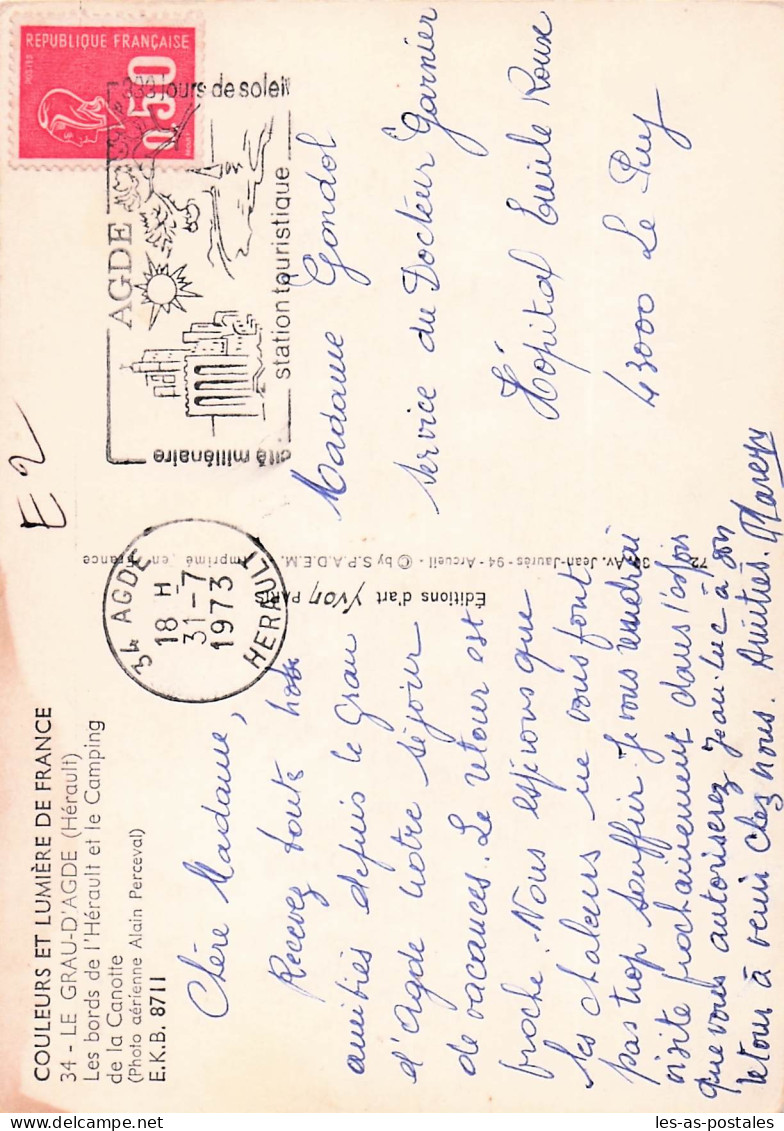 COULEURS ET LUMIÈRE DE FRANCE
34 - LE GRAU-D'AGDE (Hérault)
Les bords de l'Hérault et le Camping
de la Canotte
(Photo aérienne Alain Perceval)
E.K.B. 8711
Chère Madame,
Recevez toute
amitiés depuis le Grau
d'Agde notre séjour
de vacances. Le retour est
proche. Nous espérons que
les chaleurs ne vous font
pas trop souffrir. Je vous rendrai
visite prochainement dans l'espoir
que vous autoriserez Jean-Luc à son
retour à venir chez nous. Amitiés.
Éditions d'art Yvon PARIS
Av. Jean-Jaurès - 94 - Arcueil - © by S.P.A.D.E.M. Imprimé en France
34 AGDE
18 H
31-7
1973
HERAULT
RÉPUBLIQUE FRANÇAISE
0,50
333 jours de soleil
AGDE
station touristique
cité millénaire
E2
Madame Gondol
Service du Docteur Garnier
Hôpital Emile Roux
43000 Le Puy
les-as-postales